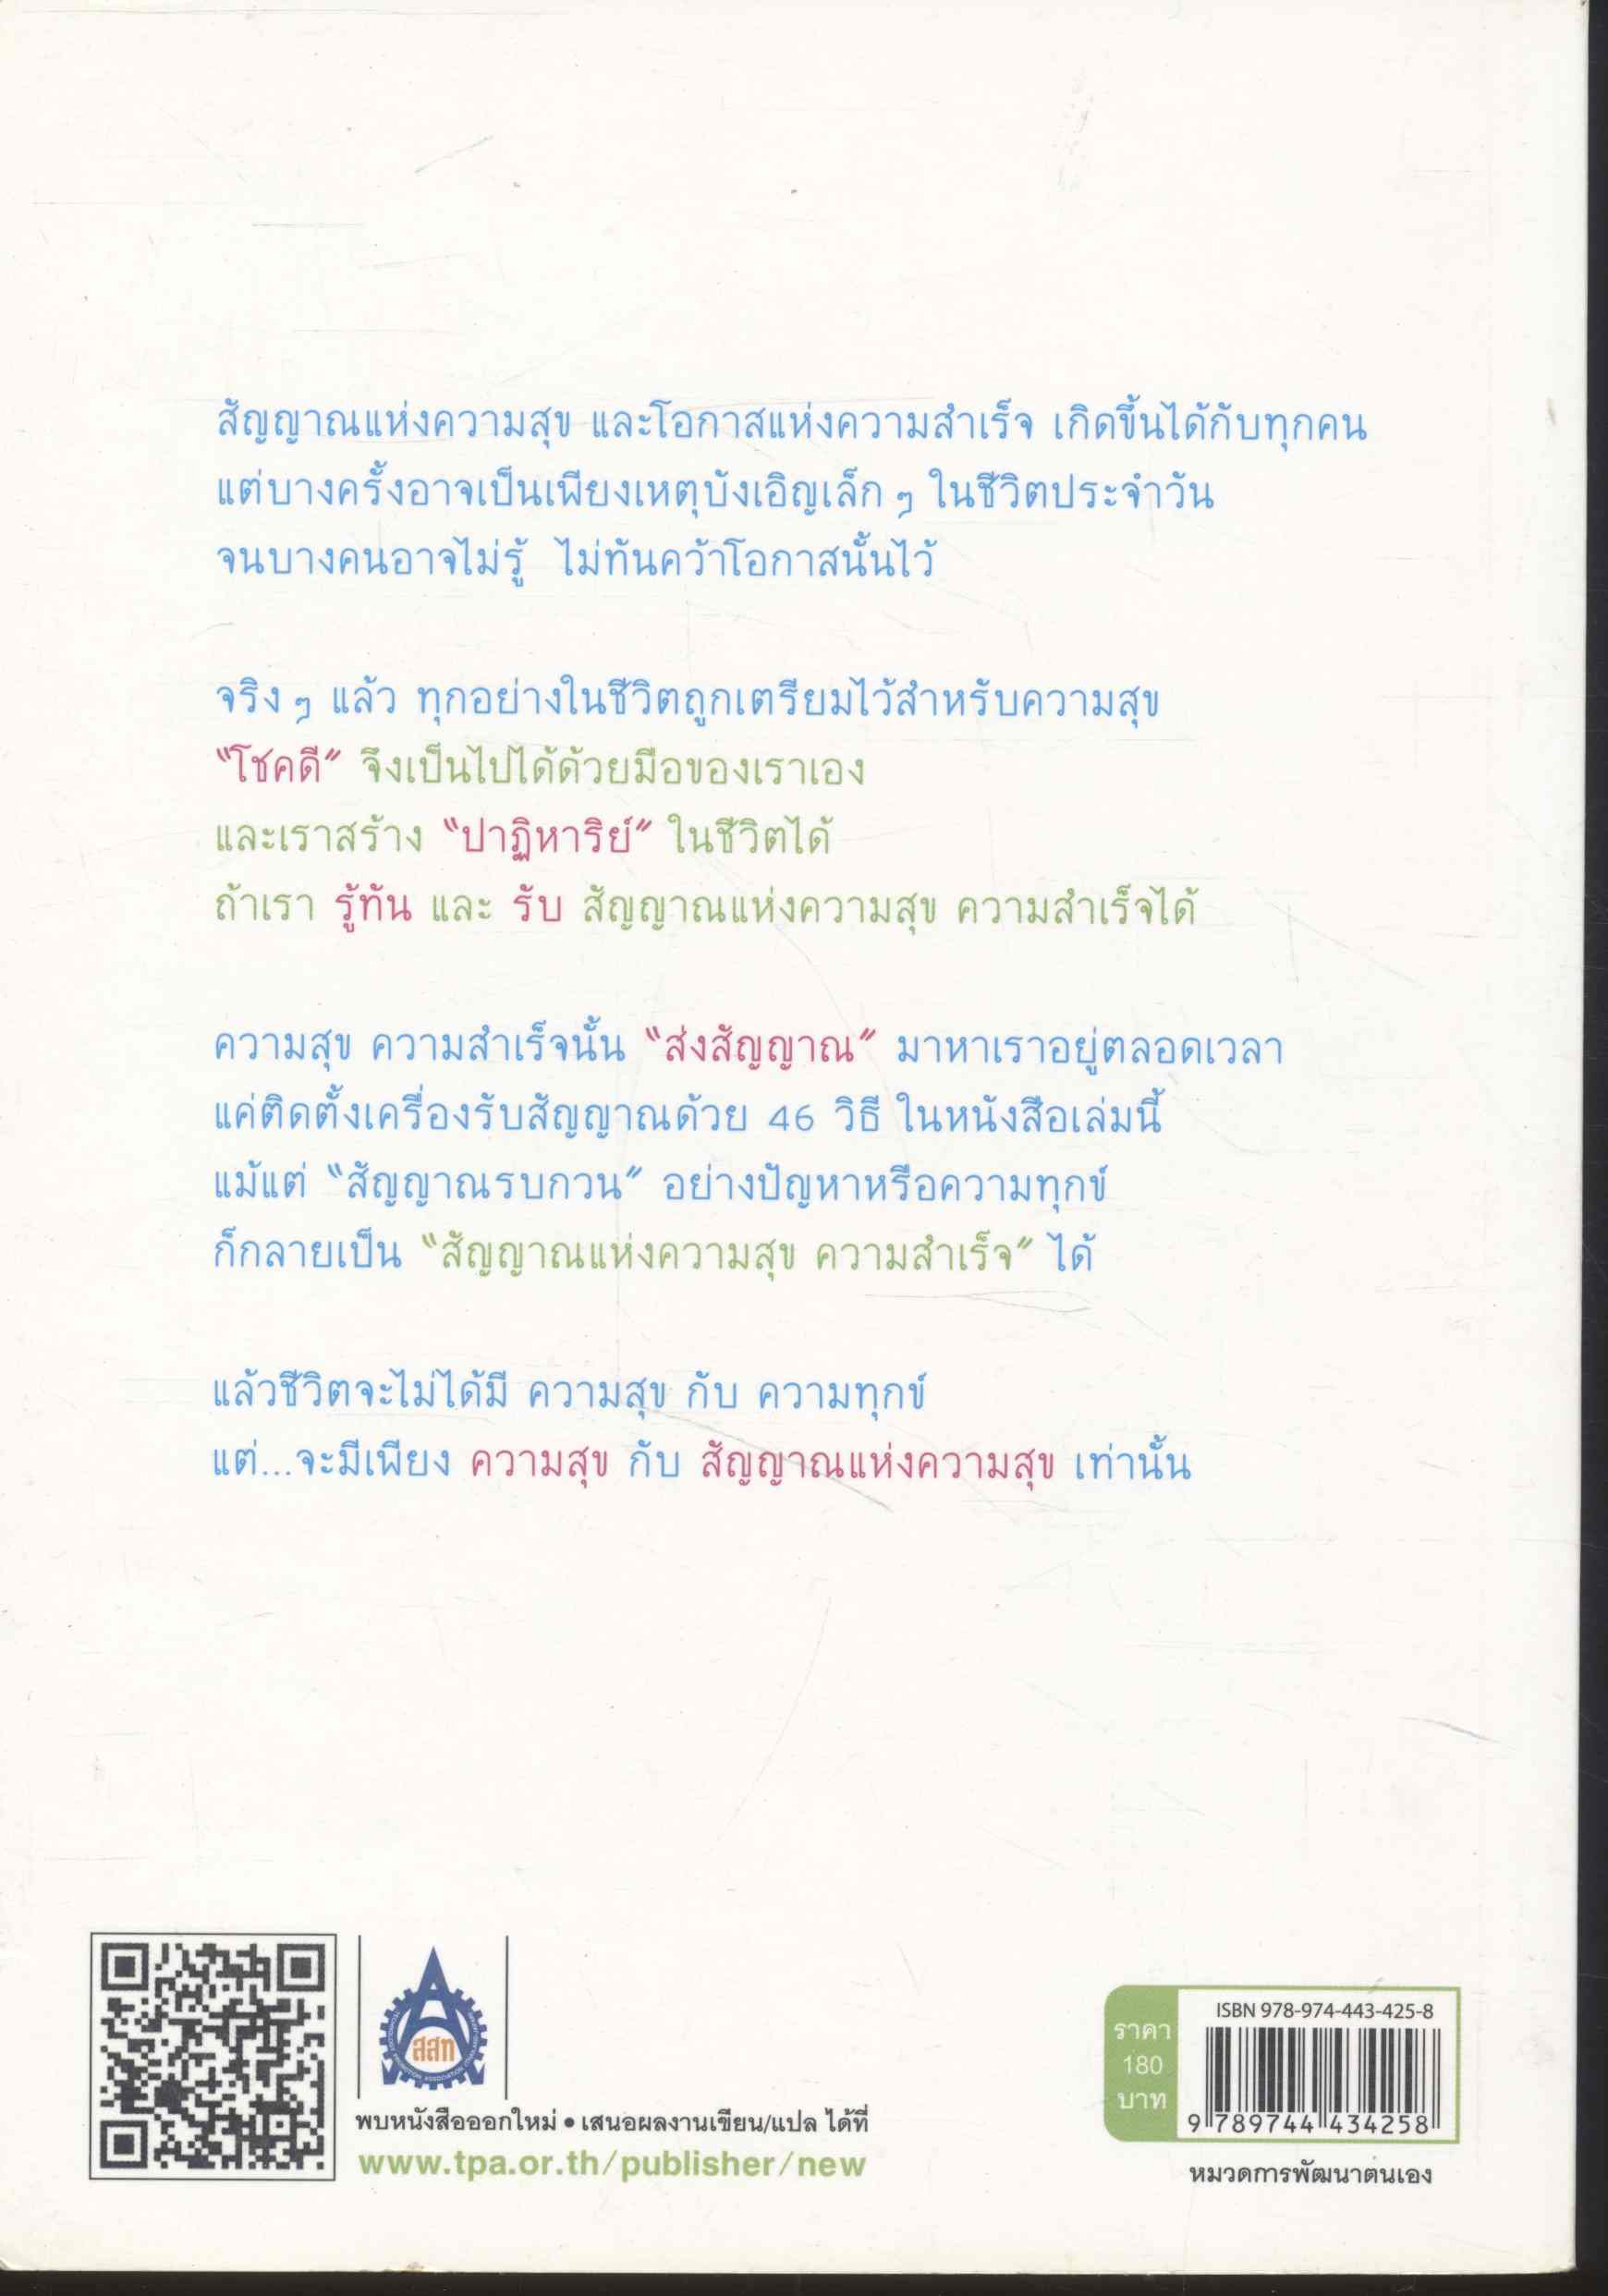 สัญญาณแห่งความสุข และโอกาสแห่งความสำเร็จ เกิดขึ้นได้กับทุกคน
แต่บางครั้งอาจเป็นเพียงเหตุบังเอิญเล็ก ๆ ในชีวิตประจำวัน
จนบางคนอาจไม่รู้ ไม่ทันคว้าโอกาสนั้นไว้
จริง ๆ แล้ว ทุกอย่างในชีวิตถูกเตรียมไว้สำหรับความสุข
"โชคดี" จึงเป็นไปได้ด้วยมือของเราเอง
และเราสร้าง "ปาฏิหาริย์" ในชีวิตได้
ถ้าเรา รู้ทัน และ รับ สัญญาณแห่งความสุข ความสำเร็จได้
ความสุข ความสำเร็จนั้น "ส่งสัญญาณ" มาหาเราอยู่ตลอดเวลา
แค่ติดตั้งเครื่องรับสัญญาณด้วย 46 วิธี ในหนังสือเล่มนี้
แม้แต่ "สัญญาณรบกวน" อย่างปัญหาหรือความทุกข์
ก็กลายเป็น "สัญญาณแห่งความสุข ความสำเร็จ" ได้
แล้วชีวิตจะไม่ได้มี ความสุข กับ ความทุกข์
แต่...จะมีเพียง ความสุข กับ สัญญาณแห่งความสุข เท่านั้น
สสท
พบหนังสือออกใหม่ • เสนอผลงานเขียน/แปล ได้ที่
www.tpa.or.th/publisher/new
ราคา
180
บาท
ISBN 978-974-443-425-8
9 789744 434258
หมวดการพัฒนาตนเอง